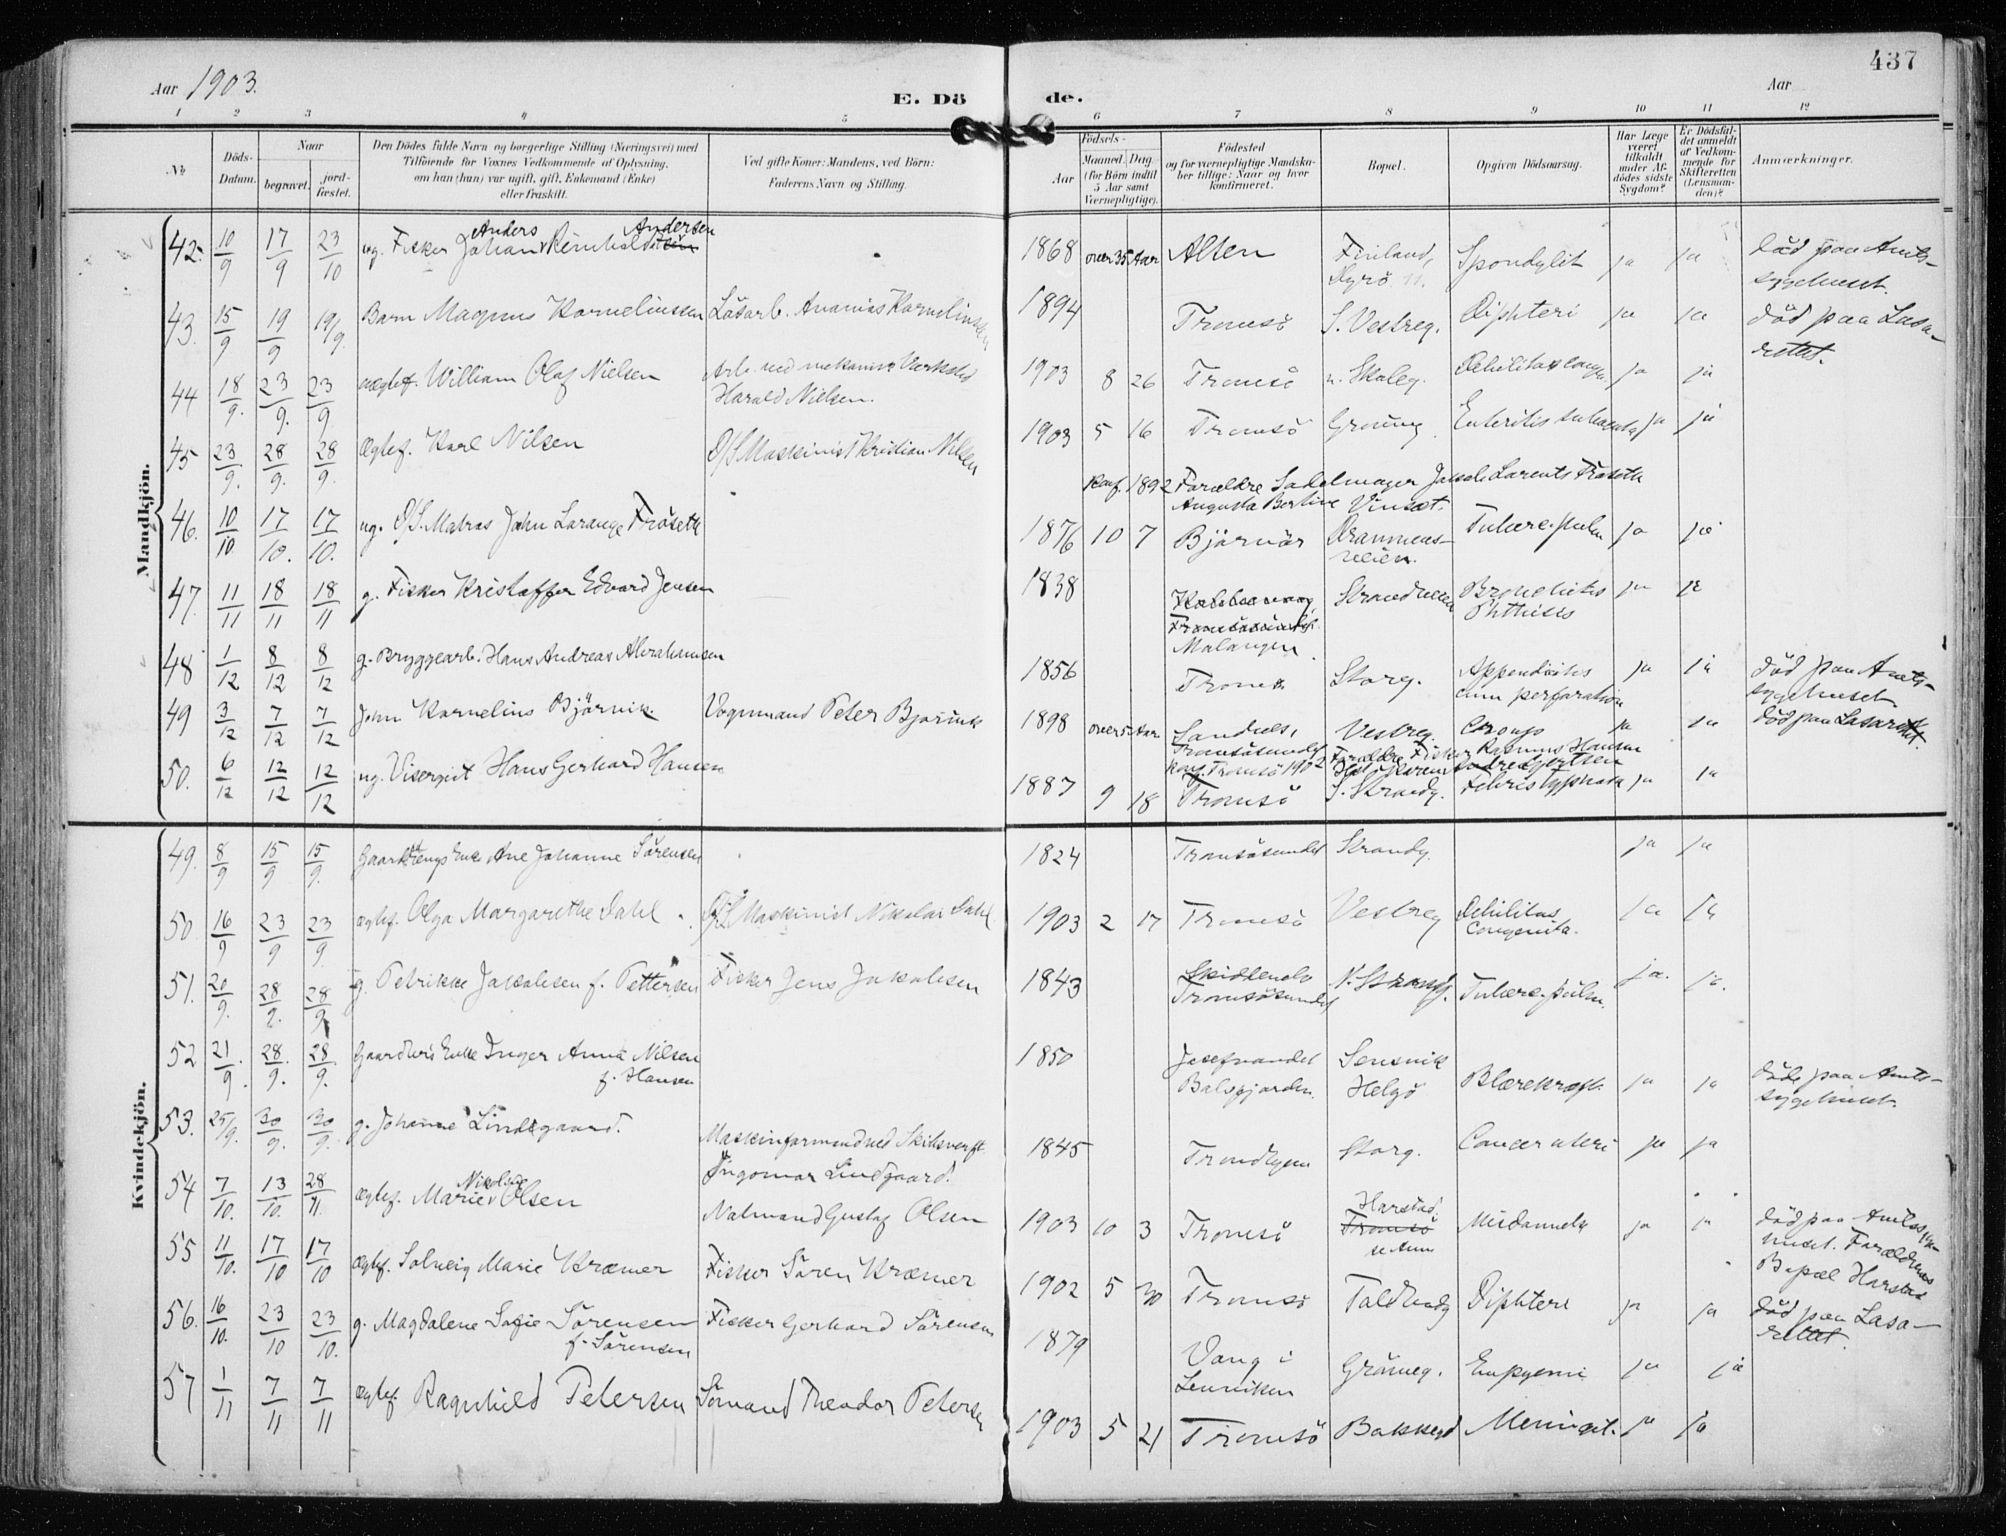 437
Aar 1903.
E. Dö de.
Aar
1 2 3 4 5 6 7 8 9 10 11 12
No
Döds-Datum.
Naar
begravet. jord-fæstet.
Den Dödes fulde Navn og borgerlige Stilling (Næringsvei) med
Tilföiende for Voxnes Vedkommende af Oplysning,
om han (hun) var ugift, gift, Enkemand (Enke)
eller fraskilt.
Ved gifte Koner: Mandens, ved Börn:
Faderens Navn og Stilling.
Födsels-
Aar
Maaned. Dag.
(for Börn indtil
5 Aar samt
Værnepligtige).
Födested
og for værnepligtige Mandska-
ber tillige: Naar og hvor
konfirmeret.
Bopæl.
Opgiven Dödsaarsag.
Har Læge
været
tilkaldt
under Af-
dödes sidste
Sygdom?
Er Dödsfal-
det anmeldt
af Vedkom-
mende for
Skifteretten
(Lensman-
den)?
Anmærkninger.
Mandkjön.
42. 10/9 17/9 23/10 ug. Fisker Johan Anders Reinholdt Andersen 1868 over 35 Aar Alten Finland, Dyrö Spondylit ja ja död paa Amts-
sygehuset.
43. 15/9 19/9 19/9. Barn Magnus Kornelinssen Lösarb. Ananias Kornelinssen 1894 Tromsö S. Vestreg. Diphteri ja ja död paa Lasa-
rettet.
44 18/9. 23/9. 23/9 uægtef. William Olaf Nielsen Arb. ved mekanisk Værksted
Harald Nielsen. 1903 8 26 Tromsö n. Skoleg. Debilitas congen. ja ja
45 23/9. 28/9. 28/9. Ægtef. Karl Nilsen D/S Maskinist Kristian Nilsen 1903 5 16 Tromsö Grönneg. Enteritis subacuta ja ja
Konf. 1892 Forældre Sadelmager Jakob Lorents Fröseth
Augusta Bertine Vinsæt.
46. 10/10 17/10. 17/10. ug. D/S. Matros John Lorange Fröseth 1876 10 7 Bjarnär Drammens-
veien. Tuberc. pulm ja ja
47. 11/11 18/11 18/11 g. Fisker Kristoffer Edvard Jensen 1838 Tromsösundet
Malangen Strandveien Bronchitis
Phthisis ja ja
48 1/12 8/12 8/12 g. Bryggearb. Hans Andreas Abrahamsen 1856 Tromsö Storg. Appendicitis
cum perforation ja ja död paa Amts-
sygehuset
49 3/12 7/12 7/12 John Kornelius Björvik. Vognmand Peter Bjørvik 1898 over 5 Aar Sandnes,
Tromsösundet Vestreg. Croup ja ja död paa Lasarettet.
konf. Tromsö 1902 Forældre Fisker Rasmus Hansen
50. 6/12 12/12 12/12 ug. Visergut Hans Gerhard Hansen 1887 9 18 Tromsö S. Strandg. Febris typhoid ja ja
Kvindekjön.
49. 8/9 15/9 15/9. Gaardbrugs Enke Ane Johanne Sörensen 1824 Tromsösundet Strandg. ja ja
50. 16/9 23/9 23/9. ægtef. Olga Margarethe Dahl D/S. Maskinist Nikolai Dahl 1903 2 17 Tromsö Vestreg Debilitas
Congenita. ja ja
51. 20/9. 28/9. 28/9 g. Petrikke Jakobsen f. Pettersen Fisker Jens Jakobsen 1843 Skittenelv
Tromsösundet N. Strandg. Tuberc. pulm. ja. ja.
52 21/9. 28/9. 28/9. Gaardbrs Enke Inger Anna Nilsen
f. Hansen 1850 Josefvandet
Balsfjorden. Lensvik
Helgö Blærekræft. ja ja död paa Amts-
sygehuset.
53. 25/9. 30/9. 30/9. g. Johanne Lindegaard. Maskinformand ved Skibsverft.
Ingomar Lindgaard. 1845 Trondhjem Storg. Cancer uteri ja ja
54 7/10. 13/10. 28/11. ægtef. Marie Nikoline Olsen Notmand Gustaf Olsen 1903 10 3 Tromsö Harstad
Tromsö Misdannelse ja ja död paa Amtssyge-
huset. Forældrenes
Bopæl Harstad
55 11/10. 17/10 17/10 ægtef. Solveig Marie Kræmer Fisker Sören Kræmer 1902 5 30 Tromsö Toldbodg Diphteri ja ja död paa Lasa-
rettet.
56. 16/10. 23/10 23/10. g. Magdalene Sofie Sörensen
f. Sörensen Fisker Gerhard Sörensen 1879 Vang i
Lenviken Grönneg. Empyemi ja ja
57 1/11 7/11 7/11 ægtef Ragnhild Petersen Sömand Theodor Petersen 1903 5 21 Tromsö Bakkegd Meningit. ja ja